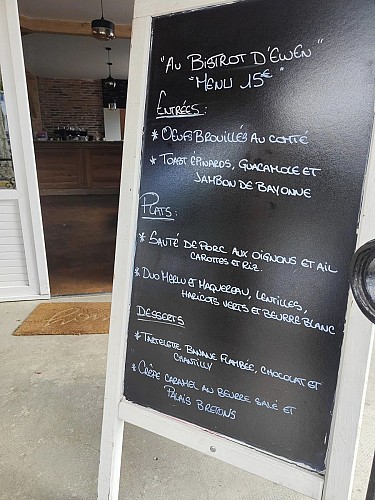 "AU BISTROT D'EWEN"
"MENU 15€"
ENTRÉES :
* OEUFS BROUILLÉS AU COMTÉ
* TOAST ÉPINARDS, GUACAMOLE ET
JAMBON DE BAYONNE
PLATS :
* SAUTÉ DE PORC AUX OIGNONS ET AIL
CAROTTES ET RIZ.
* DUO MERLU ET MAQUEREAU, LENTILLES,
HARICOTS VERTS ET BEURRE BLANC
DESSERTS
* TARTELETTE, BANANE FLAMBÉE, CHOCOLAT ET
CHANTILLY
* CRÊPE CARAMEL AU BEURRE SALÉ ET
PALAIS BRETONS